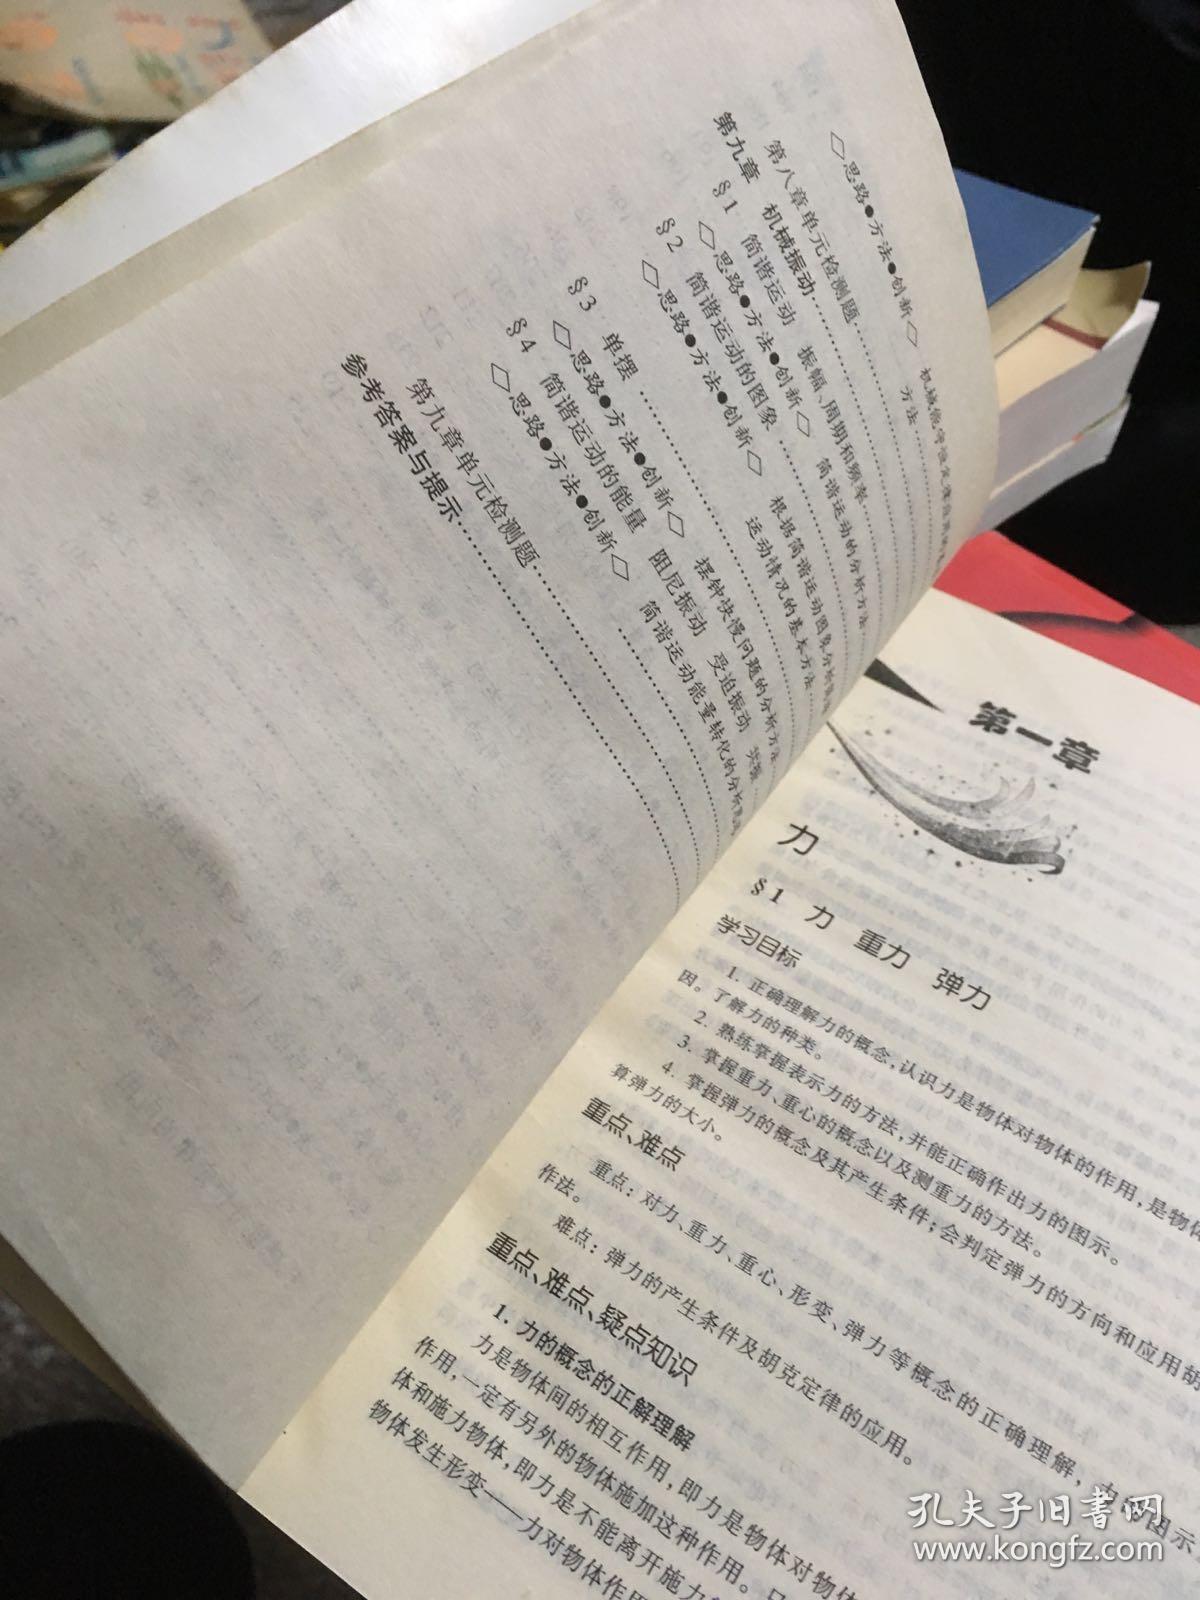 ◇思路●方法●创新◇ 机械能守恒定律应用的
方法
第八章单元检测题
第九章 机械振动
§1 简谐运动 振幅、周期和频率
◇思路●方法●创新◇ 简谐运动的分析方法
§2 简谐运动的图象
◇思路●方法●创新◇ 根据简谐运动图象分析
运动情况的基本方法
§3 单摆
◇思路●方法●创新◇ 摆钟快慢问题的分析方法
§4 简谐运动的能量 阻尼振动 受迫振动 共振
◇思路●方法●创新◇ 简谐运动能量转化的分析
第九章单元检测题
参考答案与提示
第一章
力
§1 力 重力 弹力
学习目标
1. 正确理解力的概念,认识力是物体对物体的作用,是物体
因。了解力的种类。
2. 熟练掌握表示力的方法,并能正确作出力的图示。
3. 掌握重力、重心的概念以及测重力的方法。
4. 掌握弹力的概念及其产生条件;会判定弹力的方向和应用胡
算弹力的大小。
重点、难点
重点:对力、重力、重心、形变、弹力等概念的正确理解,力的图示
作法。
难点:弹力的产生条件及胡克定律的应用。
重点、难点、疑点知识
1. 力的概念的正解理解
力是物体间的相互作用,即力是物体对物体
作用,一定有另外的物体施加这种作用。
体和施力物体,即力是不能离开施力
物体发生形变——力对物体作用
孔夫子旧书网
www.kongfz.com